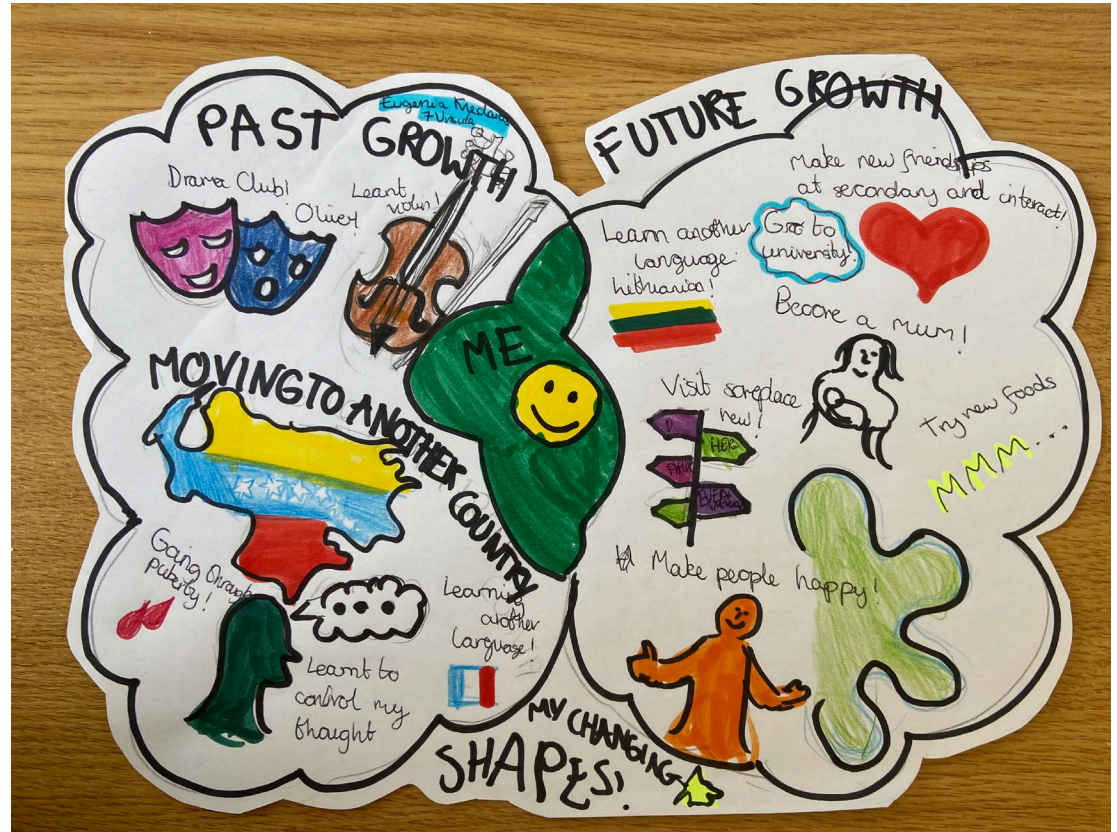 PAST GROWTH
Eugenia Medina
7 Ursula
Drama Club!
Oliver!
Learnt
violin!
MOVING TO ANOTHER COUNTRY
Going through
puberty!
Learnt to
control my
thought
Learning
another
language!
ME
FUTURE GROWTH
Make new friendships
at secondary and interact!
Learn another
language:
Lithuanian!
Go to
university!
Become a mum!
Visit someplace
new!
Try new foods
MMM...
Make people happy!
MY CHANGING
SHAPES!